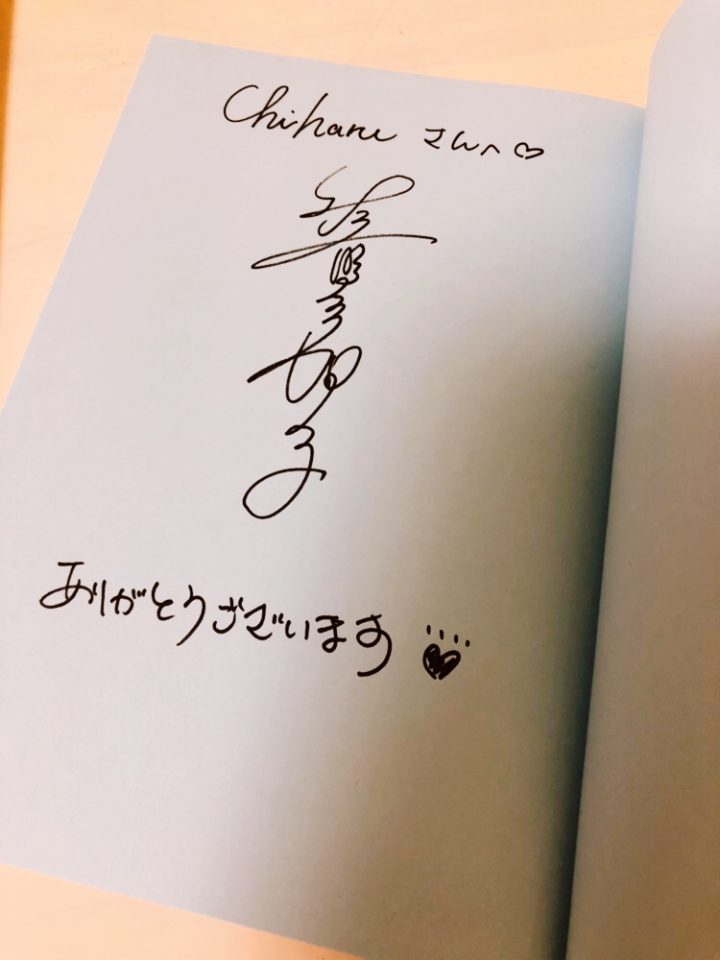 Chiharu さんへ♡
ありがとうございます♥